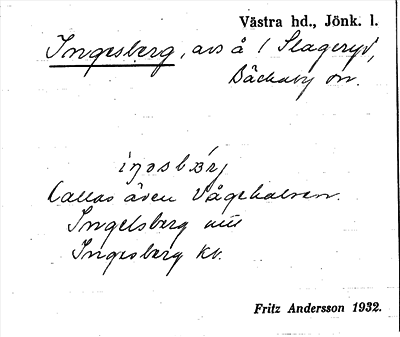 Västra hd., Jönk. l.
Ingesberg, avs å / Slageryd,
Bäckaby sn.
iŋəsbærj
Kallas även Vågehalsen.
Ingelsberg
Ingesberg kv.
Fritz Andersson 1932.